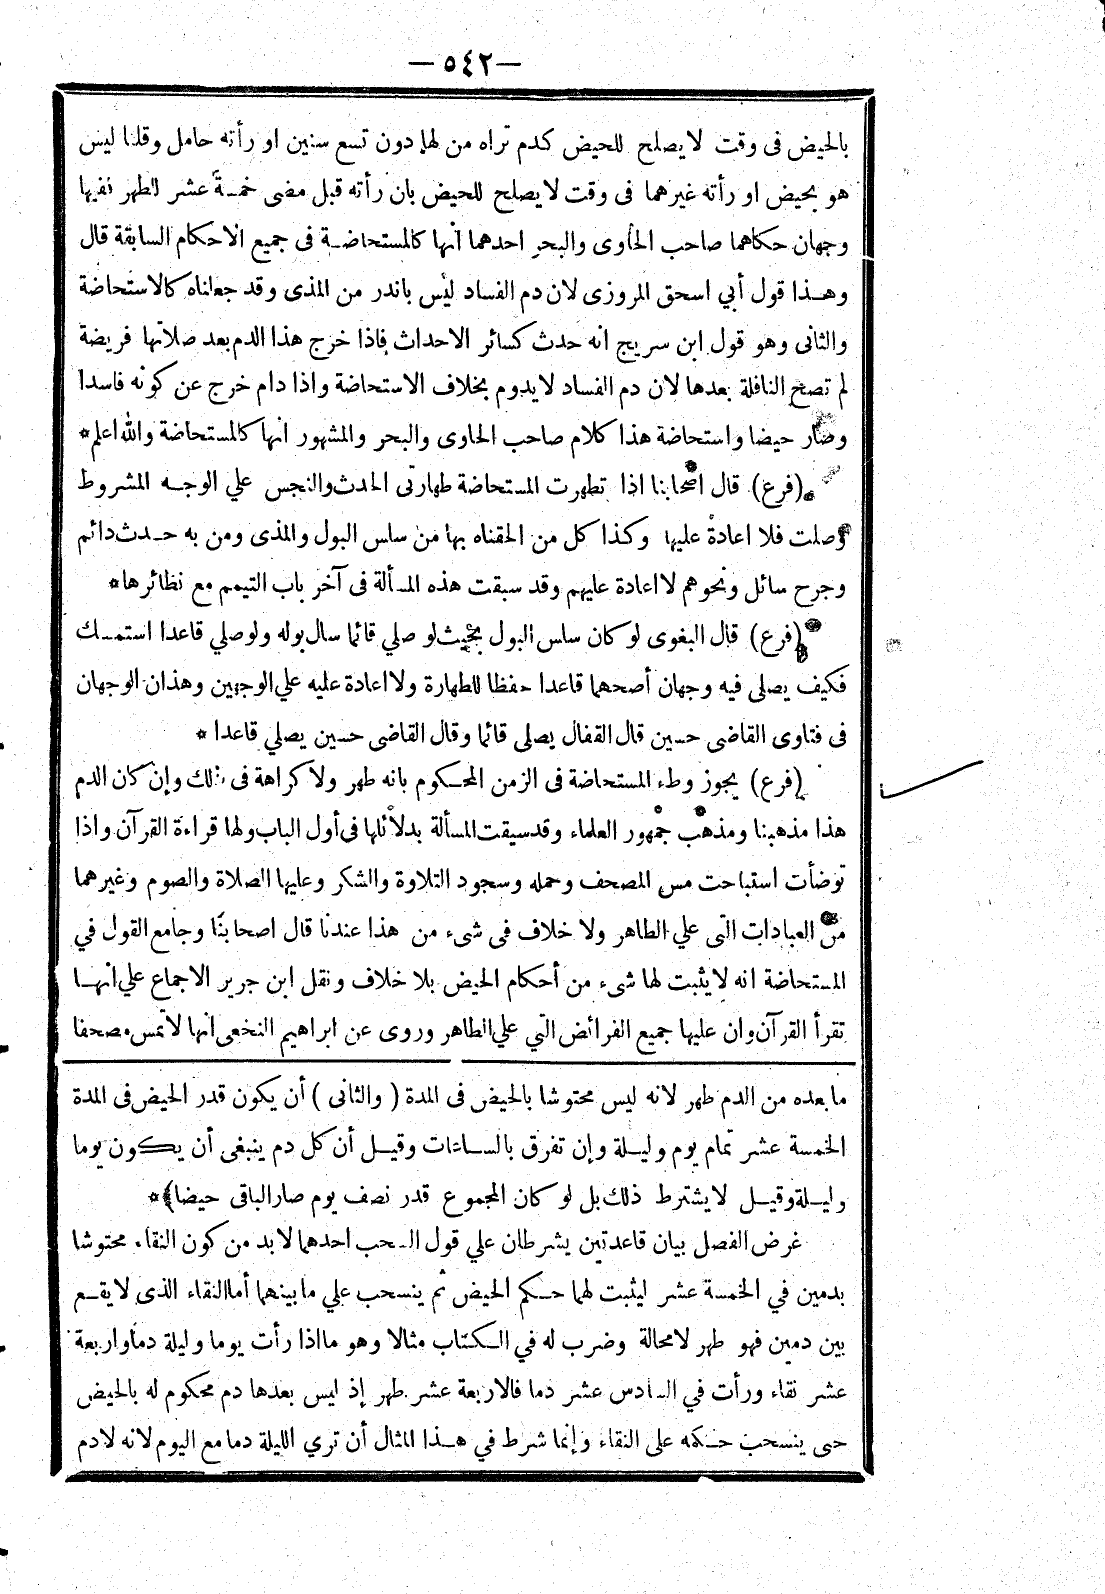 — ٥٤٢ —
بالحيض فى وقت لا يصلح للحيض كدم تراه من لها دون تسع سنين او رأته حامل وقلنا ليس
هو بحيض او رأته غيرهما فى وقت لا يصلح للحيض بان رأته قبل مضى خمسة عشر للطهر ففيها
وجهان حكاهما صاحب الحاوى والبحر احدهما انها كالمستحاضة فى جميع الاحكام السابقة قال
وهذا قول أبي اسحق المروزى لان دم الفساد ليس باندر من المذى وقد جعلناه كالاستحاضة
والثانى وهو قول ابن سريج انه حدث كسائر الاحداث فاذا خرج هذا الدم بعد صلاتها فريضة
لم تصح النافلة بعدها لان دم الفساد لا يدوم بخلاف الاستحاضة واذا دام خرج عن كونه فاسدا
وصار حيضا واستحاضة هذا كلام صاحب الحاوى والبحر والمشهور انها كالمستحاضة والله اعلم*
(فرع) قال اصحابنا اذا تطهرت المستحاضة طهارتى الحدث والنجس علي الوجه المشروط
وصلت فلا اعادة عليها وكذا كل من الحقناه بها من سلس البول والمذى ومن به حدث دائم
وجرح سائل ونحوهم لا اعادة عليهم وقد سبقت هذه المسألة فى آخر باب التيمم مع نظائرها*
(فرع) قال البغوى لو كان سلس البول بحيث لو صلي قائما سال بوله ولو صلي قاعدا استمسك
فكيف يصلى فيه وجهان أصحهما قاعدا حفظا للطهارة ولا اعادة عليه علي الوجهين وهذان الوجهان
فى فتاوى القاضى حسين قال القفال يصلى قائما وقال القاضى حسين يصلي قاعدا *
(فرع) يجوز وطء المستحاضة فى الزمن المحكوم بانه طهر ولا كراهة فى ذلك وإن كان الدم
هذا مذهبنا ومذهب جمهور العلماء وقد سبقت المسألة بدلائلها فى أول الباب ولها قراءة القرآن واذا
توضأت استباحت مس المصحف وحمله وسجود التلاوة والشكر وعليها الصلاة والصوم وغيرهما
من العبادات التى علي الطاهر ولا خلاف فى شىء من هذا عندنا قال اصحابنا وجامع القول في
المستحاضة انه لا يثبت لها شىء من أحكام الحيض بلا خلاف ونقل ابن جرير الاجماع علي انها
تقرأ القرآن وان عليها جميع الفرائض التي علي الطاهر وروى عن ابراهيم النخعى انها لا تمس مصحفا
ما بعده من الدم طهر لانه ليس محتوشا بالحيض فى المدة ( والثانى ) أن يكون قدر الحيض فى المدة
الخمسة عشر تمام يوم وليلة وإن تفرق بالساعات وقيل أن كل دم ينبغى أن يكون يوما
وليلة وقيل لا يشترط ذلك بل لو كان المجموع قدر نصف يوم صار الباقى حيضا﴾*
غرض الفصل بيان قاعدتين يشرطان علي قول السحب احدهما لا بد من كون النقاء محتوشا
بدمين في الخمسة عشر ليثبت لهما حكم الحيض ثم ينسحب علي ما بينهما أما النقاء الذى لا يقع
بين دمين فهو طهر لا محالة وضرب له في الكتاب مثالا وهو ما اذا رأت يوما وليلة دما واربعة
عشر نقاء ورأت في السادس عشر دما فالاربعة عشر طهر إذ ليس بعدها دم محكوم له بالحيض
حتى ينسحب حكمه على النقاء وإنما شرط في هذا المثال أن تري الليلة دما مع اليوم لانه لا دم